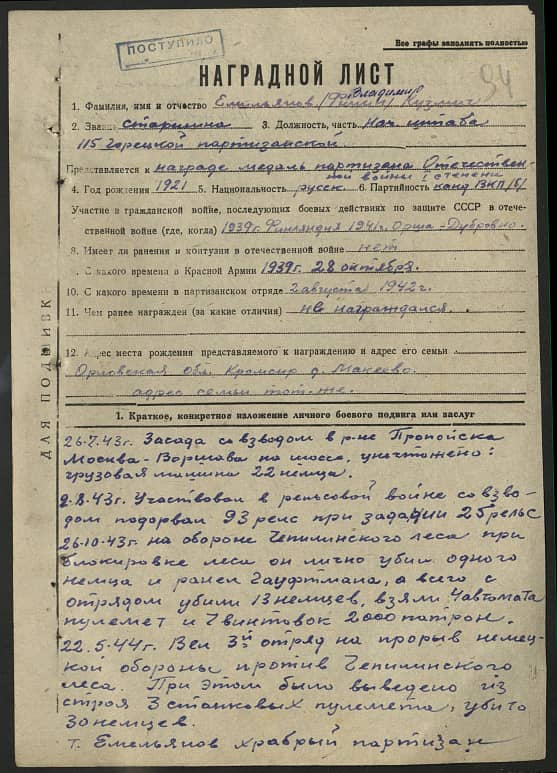 ПОСТУПИЛО
Все графы заполнять полностью
94
НАГРАДНОЙ ЛИСТ
Владимир
1. Фамилия, имя и отчество Емельянов / / Кузмич
2. Звание старшина 3. Должность, часть нач. штаба
115 Горецкой партизанской
Представляется к награде медаль партизана Отечествен-
ной войны I степени
4. Год рождения 1921 5. Национальность русск. 6. Партийность канд. ВКП/б/
Участие в гражданской войне, последующих боевых действиях по защите СССР в отече-
ственной войне (где, когда) 1939г. Финляндия 1941г. Орша-Дубровно.
8. Имеет ли ранения и контузии в отечественной войне нет
С какого времени в Красной Армии 1939г. 28 октября.
10. С какого времени в партизанском отряде 2 августа 1942г.
11. Чем ранее награжден (за какие отличия) не награждался.
12. Адрес места рождения представляемого к награждению и адрес его семьи
Орловская обл. д. Макеево.
адрес семьи тот-же.
ДЛЯ ПОДШИВК
1. Краткое, конкретное изложение личного боевого подвига или заслуг
26.7.43г. Засада со взводом в р-не Пропойска
Москва-Варшава на шоссе, уничтожено:
грузовая машина 22 немца.
2.8.43г. Участвовал в рельсовой войне со взво-
дом подорвал 93 рельс при задании 25 рельс
26.10.43г. на обороне Чепилинского леса при
блокировке леса он лично убил одного
немца и ранен Гауфтмана, а всего с
отрядом убили 13 немцев, взяли 4 автомата
пулемет и 7 винтовок 2000 патрон.
22.5.44г. Вел 3й отряд на прорыв немец-
кой обороны против Чепилинского
леса. При этом было выведено из
строя 3 станковых пулемета, убито
30 немцев.
т. Емельянов храбрый партизан